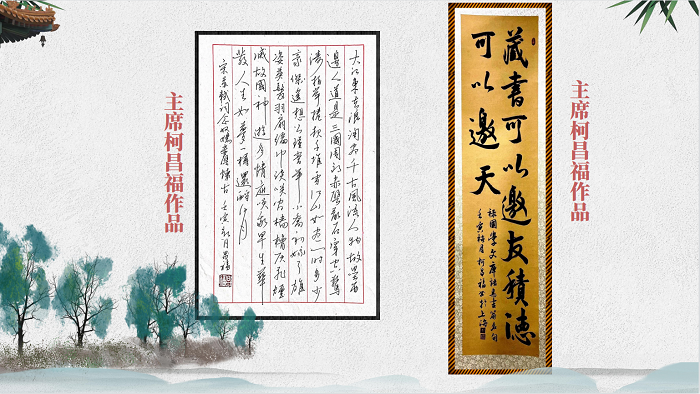 主席柯昌福作品
大江東去浪淘盡千古風流人物故壘西
邊人道是三國周郎赤壁亂石穿空驚
濤拍岸捲起千堆雪江山如画一时多少
豪傑遙想公瑾當年小喬初嫁了雄
姿英發羽扇綸巾談笑間檣櫓灰飛煙
滅故國神遊多情應笑我早生華
發人生如夢一樽還酹江月
宋蘇軾词念奴嬌赤壁懷古 壬寅 月昌福
主席柯昌福作品
藏書可以邀友積德
可以邀天
錄國學文庫經典古籍名句
壬寅梅月柯昌福书於上海